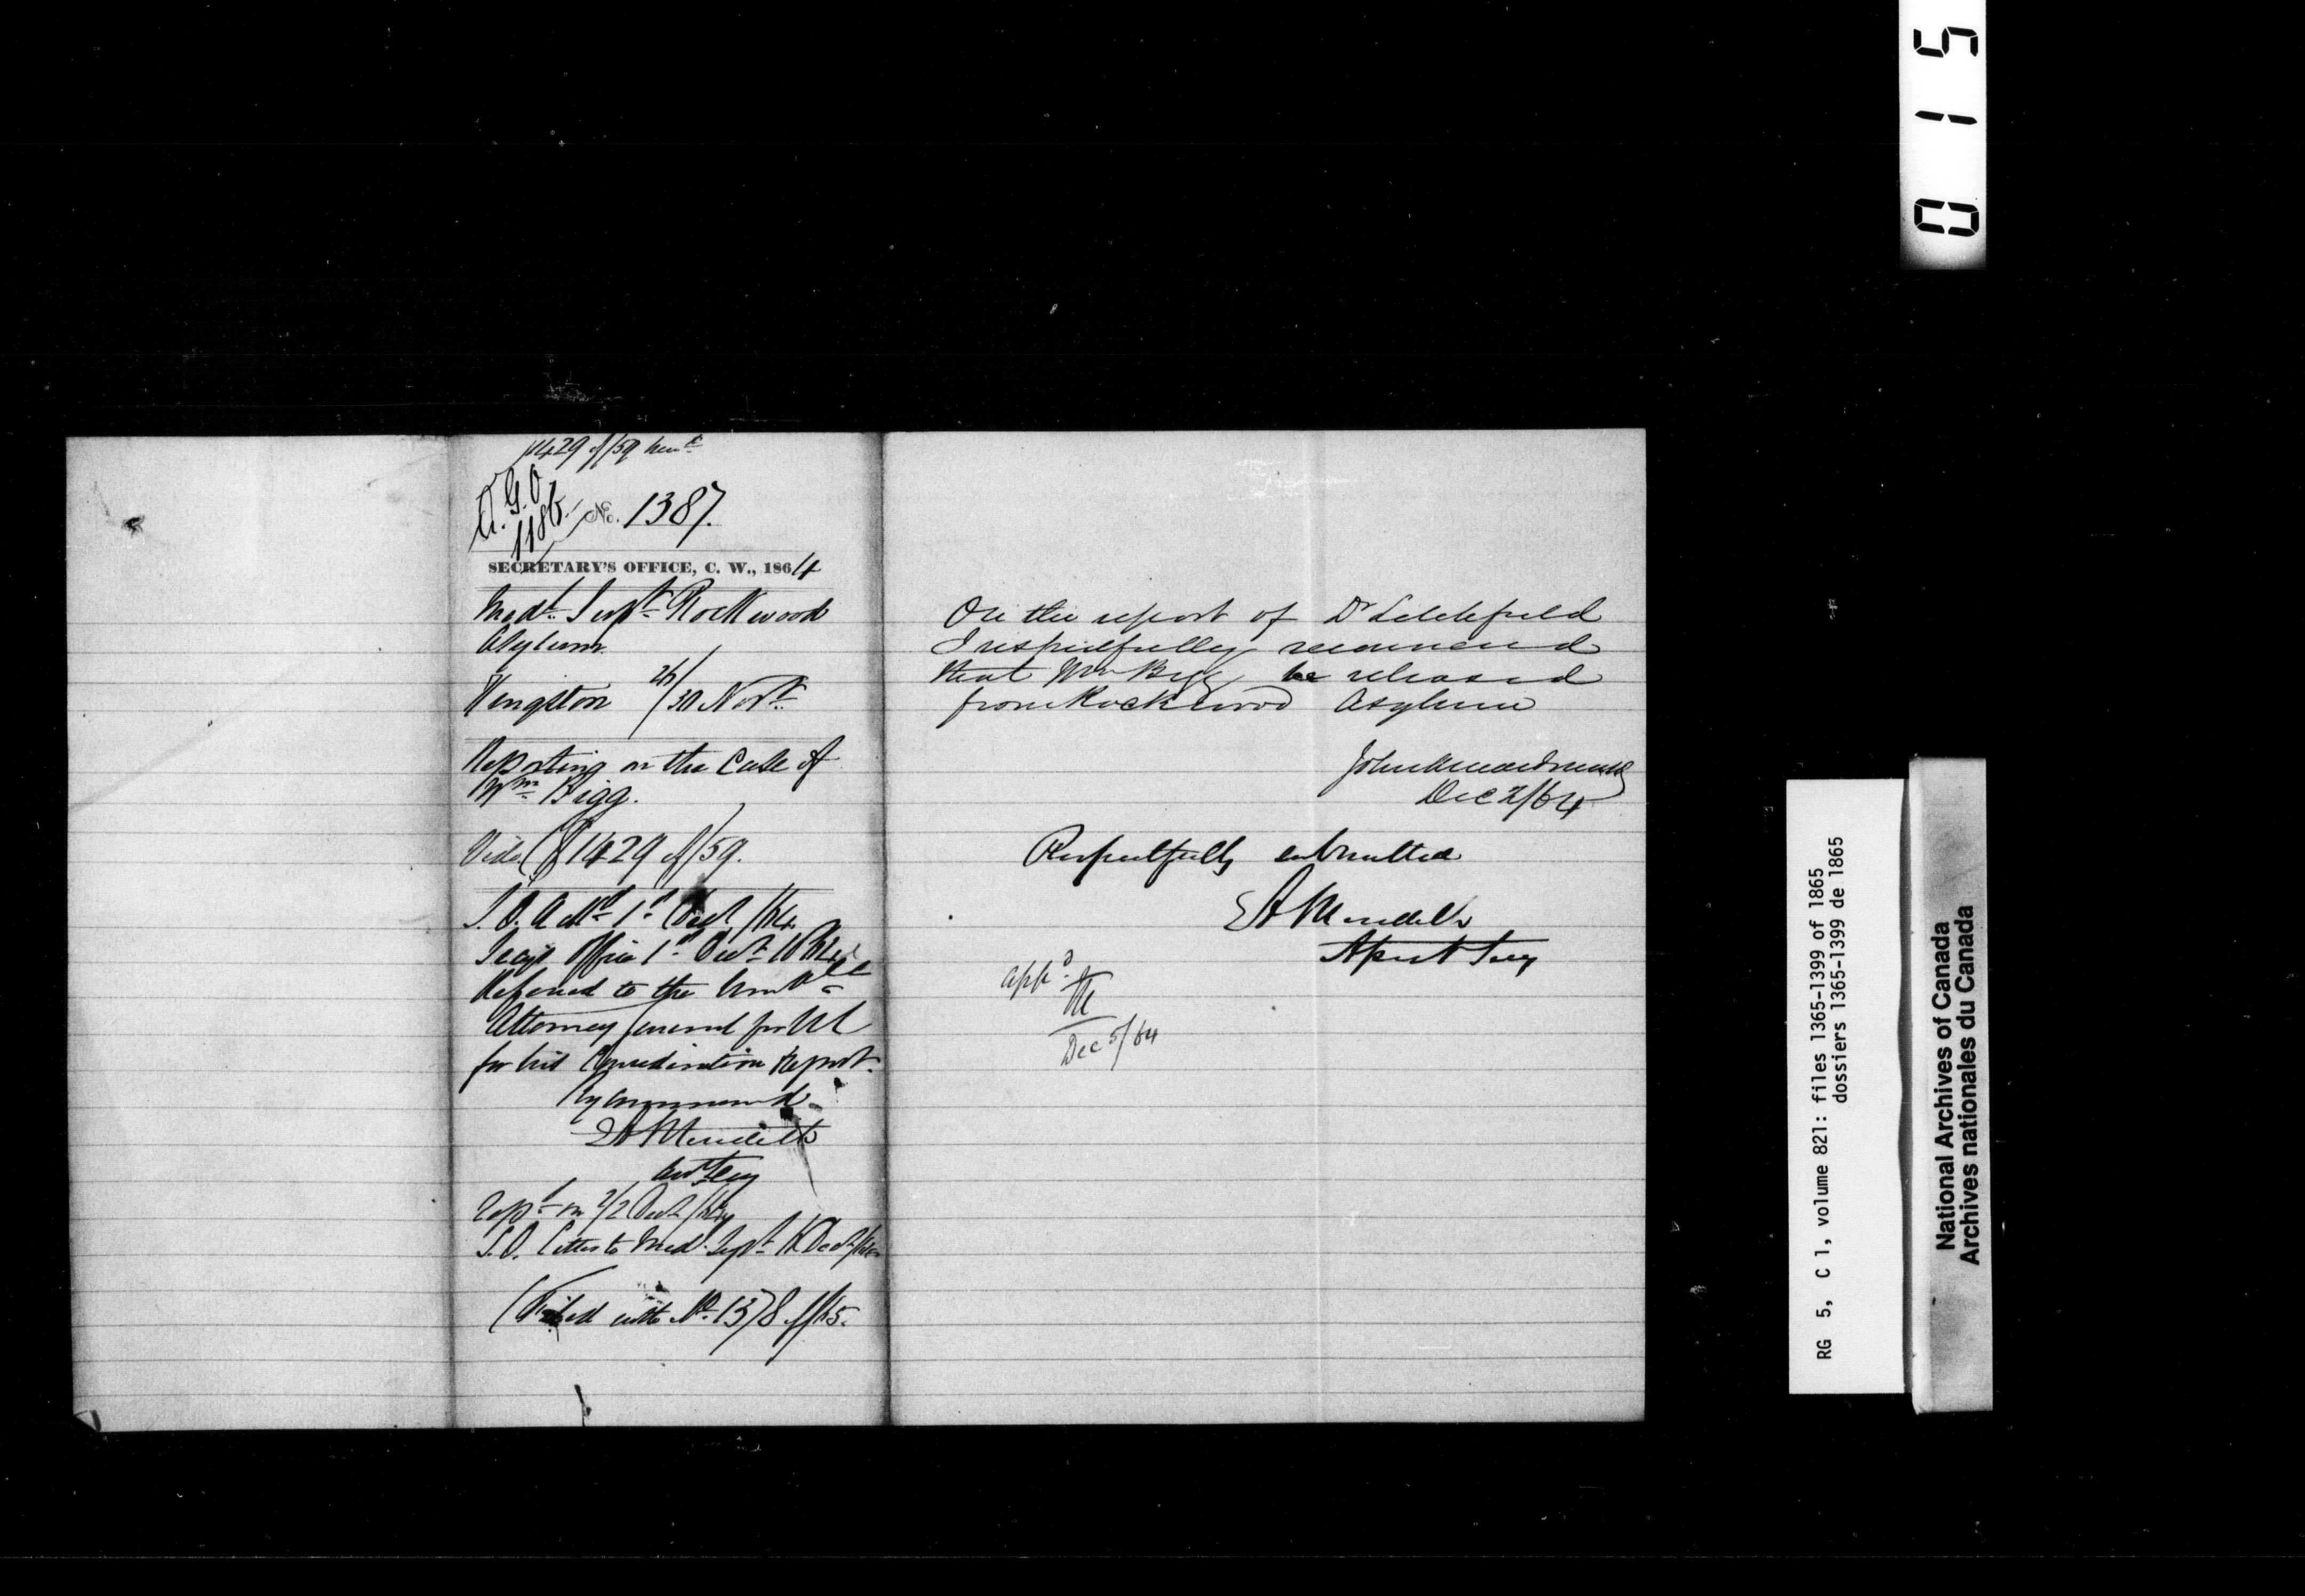 1429 of/59 herewith
A.G.O.
1186.
No. 1387.
SECRETARY'S OFFICE, C. W., 1864
Medl. Supt. Rockwood
Asylum
Kingston 26/30 Novr.
Reporting on the Case of
Wm. Bigg.
Vide 1429 of/59.
S. O. Ackd. 1st Decr /64
Secys Office 1st Decr. 1864
Referred to the Honble
Attorney General for UC
for his Consideration & Report.
By Command
E A Meredith
Asst Secy
Repd. on 2/2 Decr /64
S.O. Letter to Med. Supt. Decr/64
(Filed with No. 1378 of/65.
On the report of Dr Litchfield
I respectfully recommend
that Wm Bigg be released
from Rockwood Asylum
John A Macdonald
Dec 2/64
Respectfully submitted
E A Meredith
Asst Secy
appd.
M
Dec 5/64
0 1 5
RG 5, C 1, volume 821: files 1365-1399 of 1865
dossiers 1365-1399 de 1865
National Archives of Canada
Archives nationales du Canada